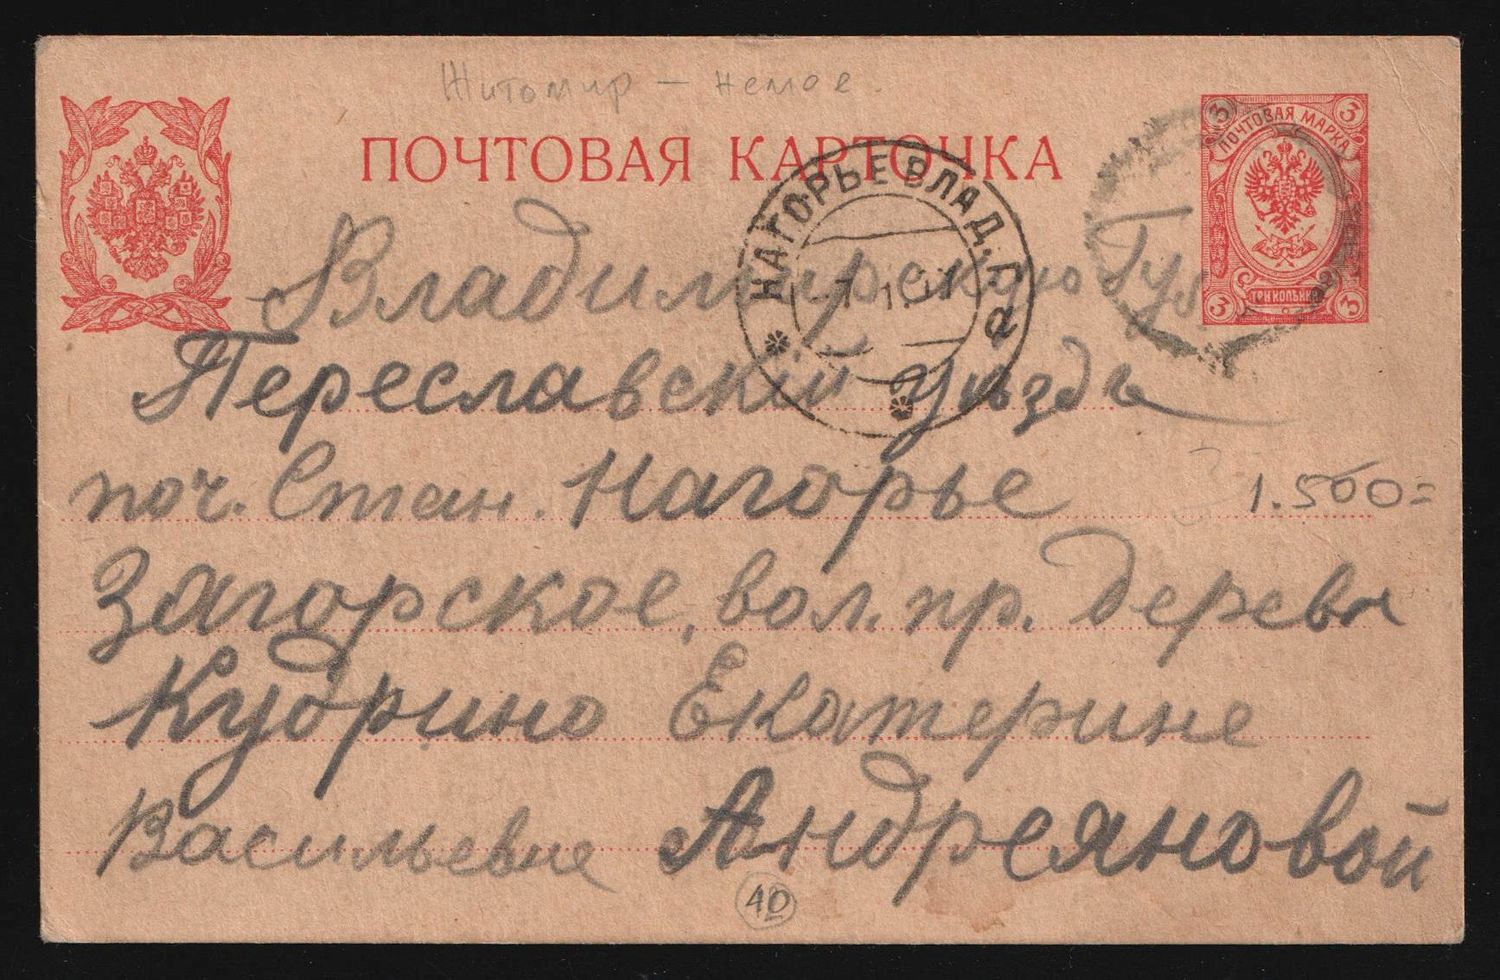 Житомир – немое.
ПОЧТОВАЯ КАРТОЧКА
3 ПОЧТОВАЯ МАРКА 3
3 ТРИ КОПѢЙКИ 3
НАГОРЬЕ ВЛАД. Г.
а
Владимирскую Губ
Переславскій уѣзда
поч. Стан. Нагорье
1.500=
Загорское, вол. пр. деревн
Кудрино Екатерине
Васильевне Андреяновой
40